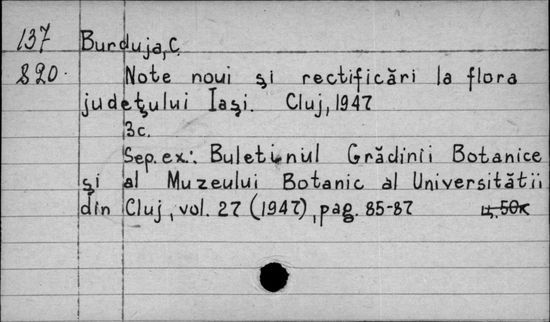 137 Burduja, C.
820. Note noui și rectificări la flora
județului Iași. Cluj, 1947
3c.
Sep. ex.: Buletinul Grădinii Botanice
și al Muzeului Botanic al Universitătii
din Cluj, vol. 27 (1947), pag. 85-87